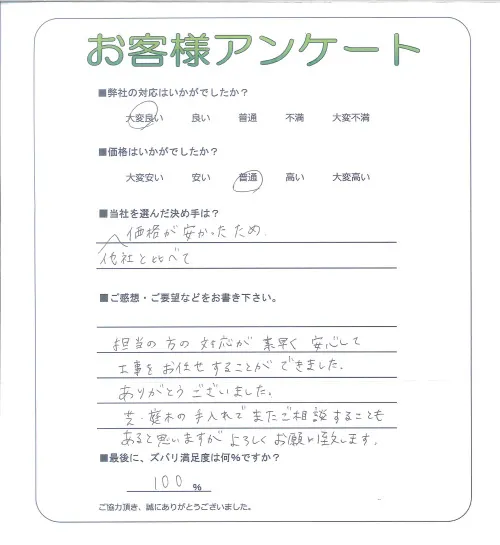 お客様アンケート
■弊社の対応はいかがでしたか？
大変良い 良い 普通 不満 大変不満
■価格はいかがでしたか？
大変安い 安い 普通 高い 大変高い
■当社を選んだ決め手は？
価格が安かったため
他社と比べて
■ご感想・ご要望などをお書き下さい。
担当の方の対応が素早く安心して
工事をお任せすることができました。
ありがとうございました。
芝・庭木の手入れでまたご相談することも
あると思いますがよろしくお願い致えします。
■最後に、ズバリ満足度は何%ですか？
100%
ご協力頂き、誠にありがとうございました。